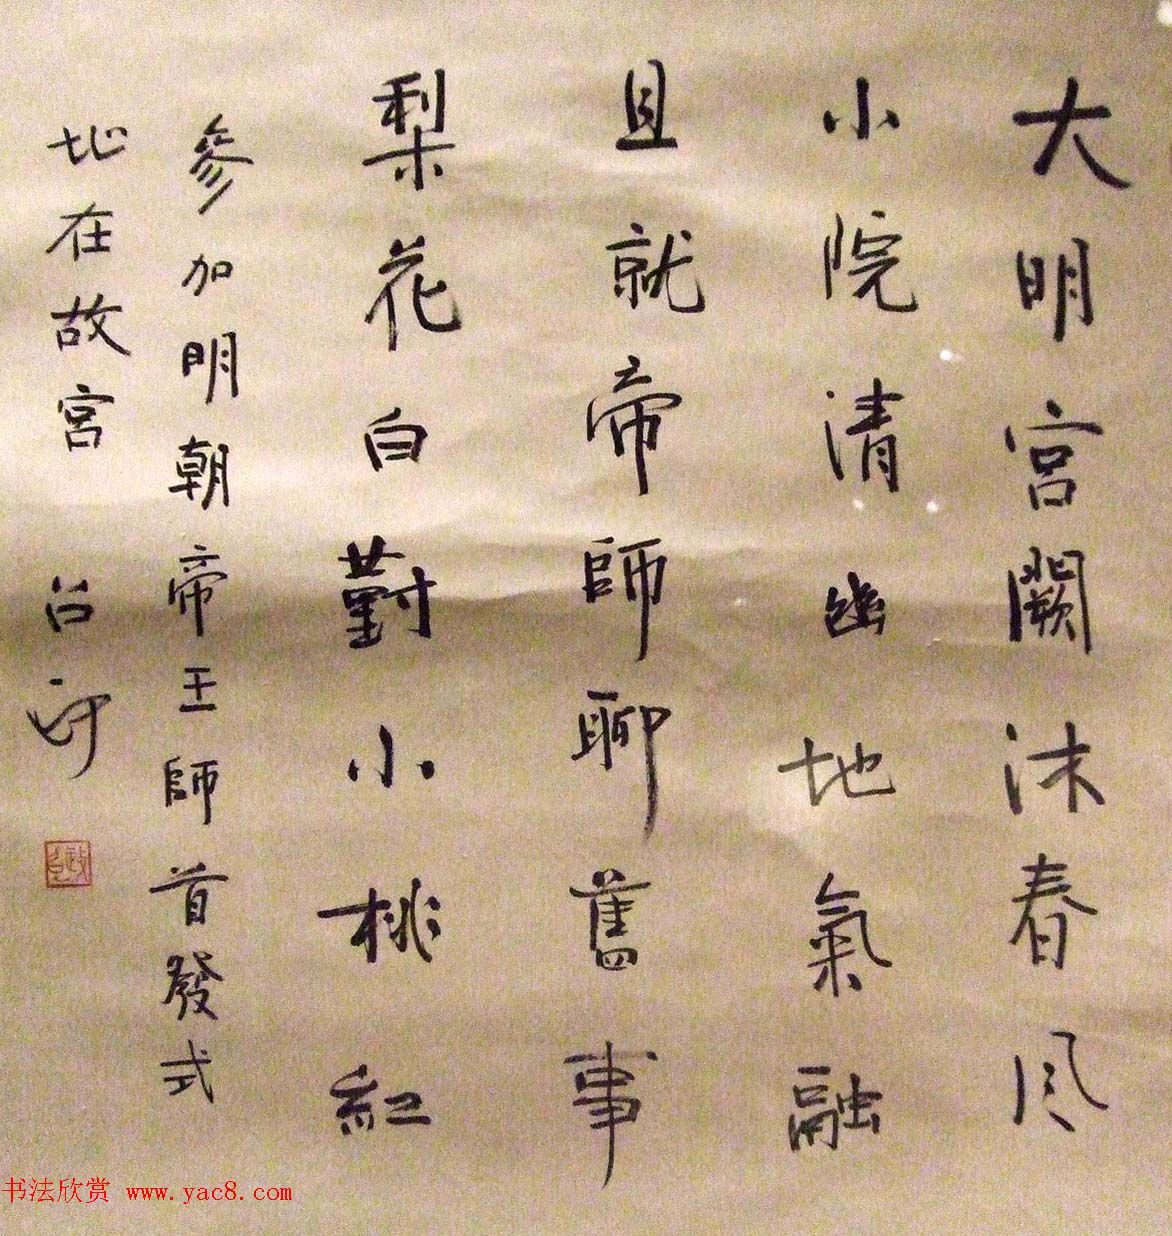 大明宮闕沐春风
小院清幽地氣融
且就帝師聊舊事
梨花白對小桃紅
參加明朝帝王師首發式
地在故宮
书法欣赏 www.yac8.com